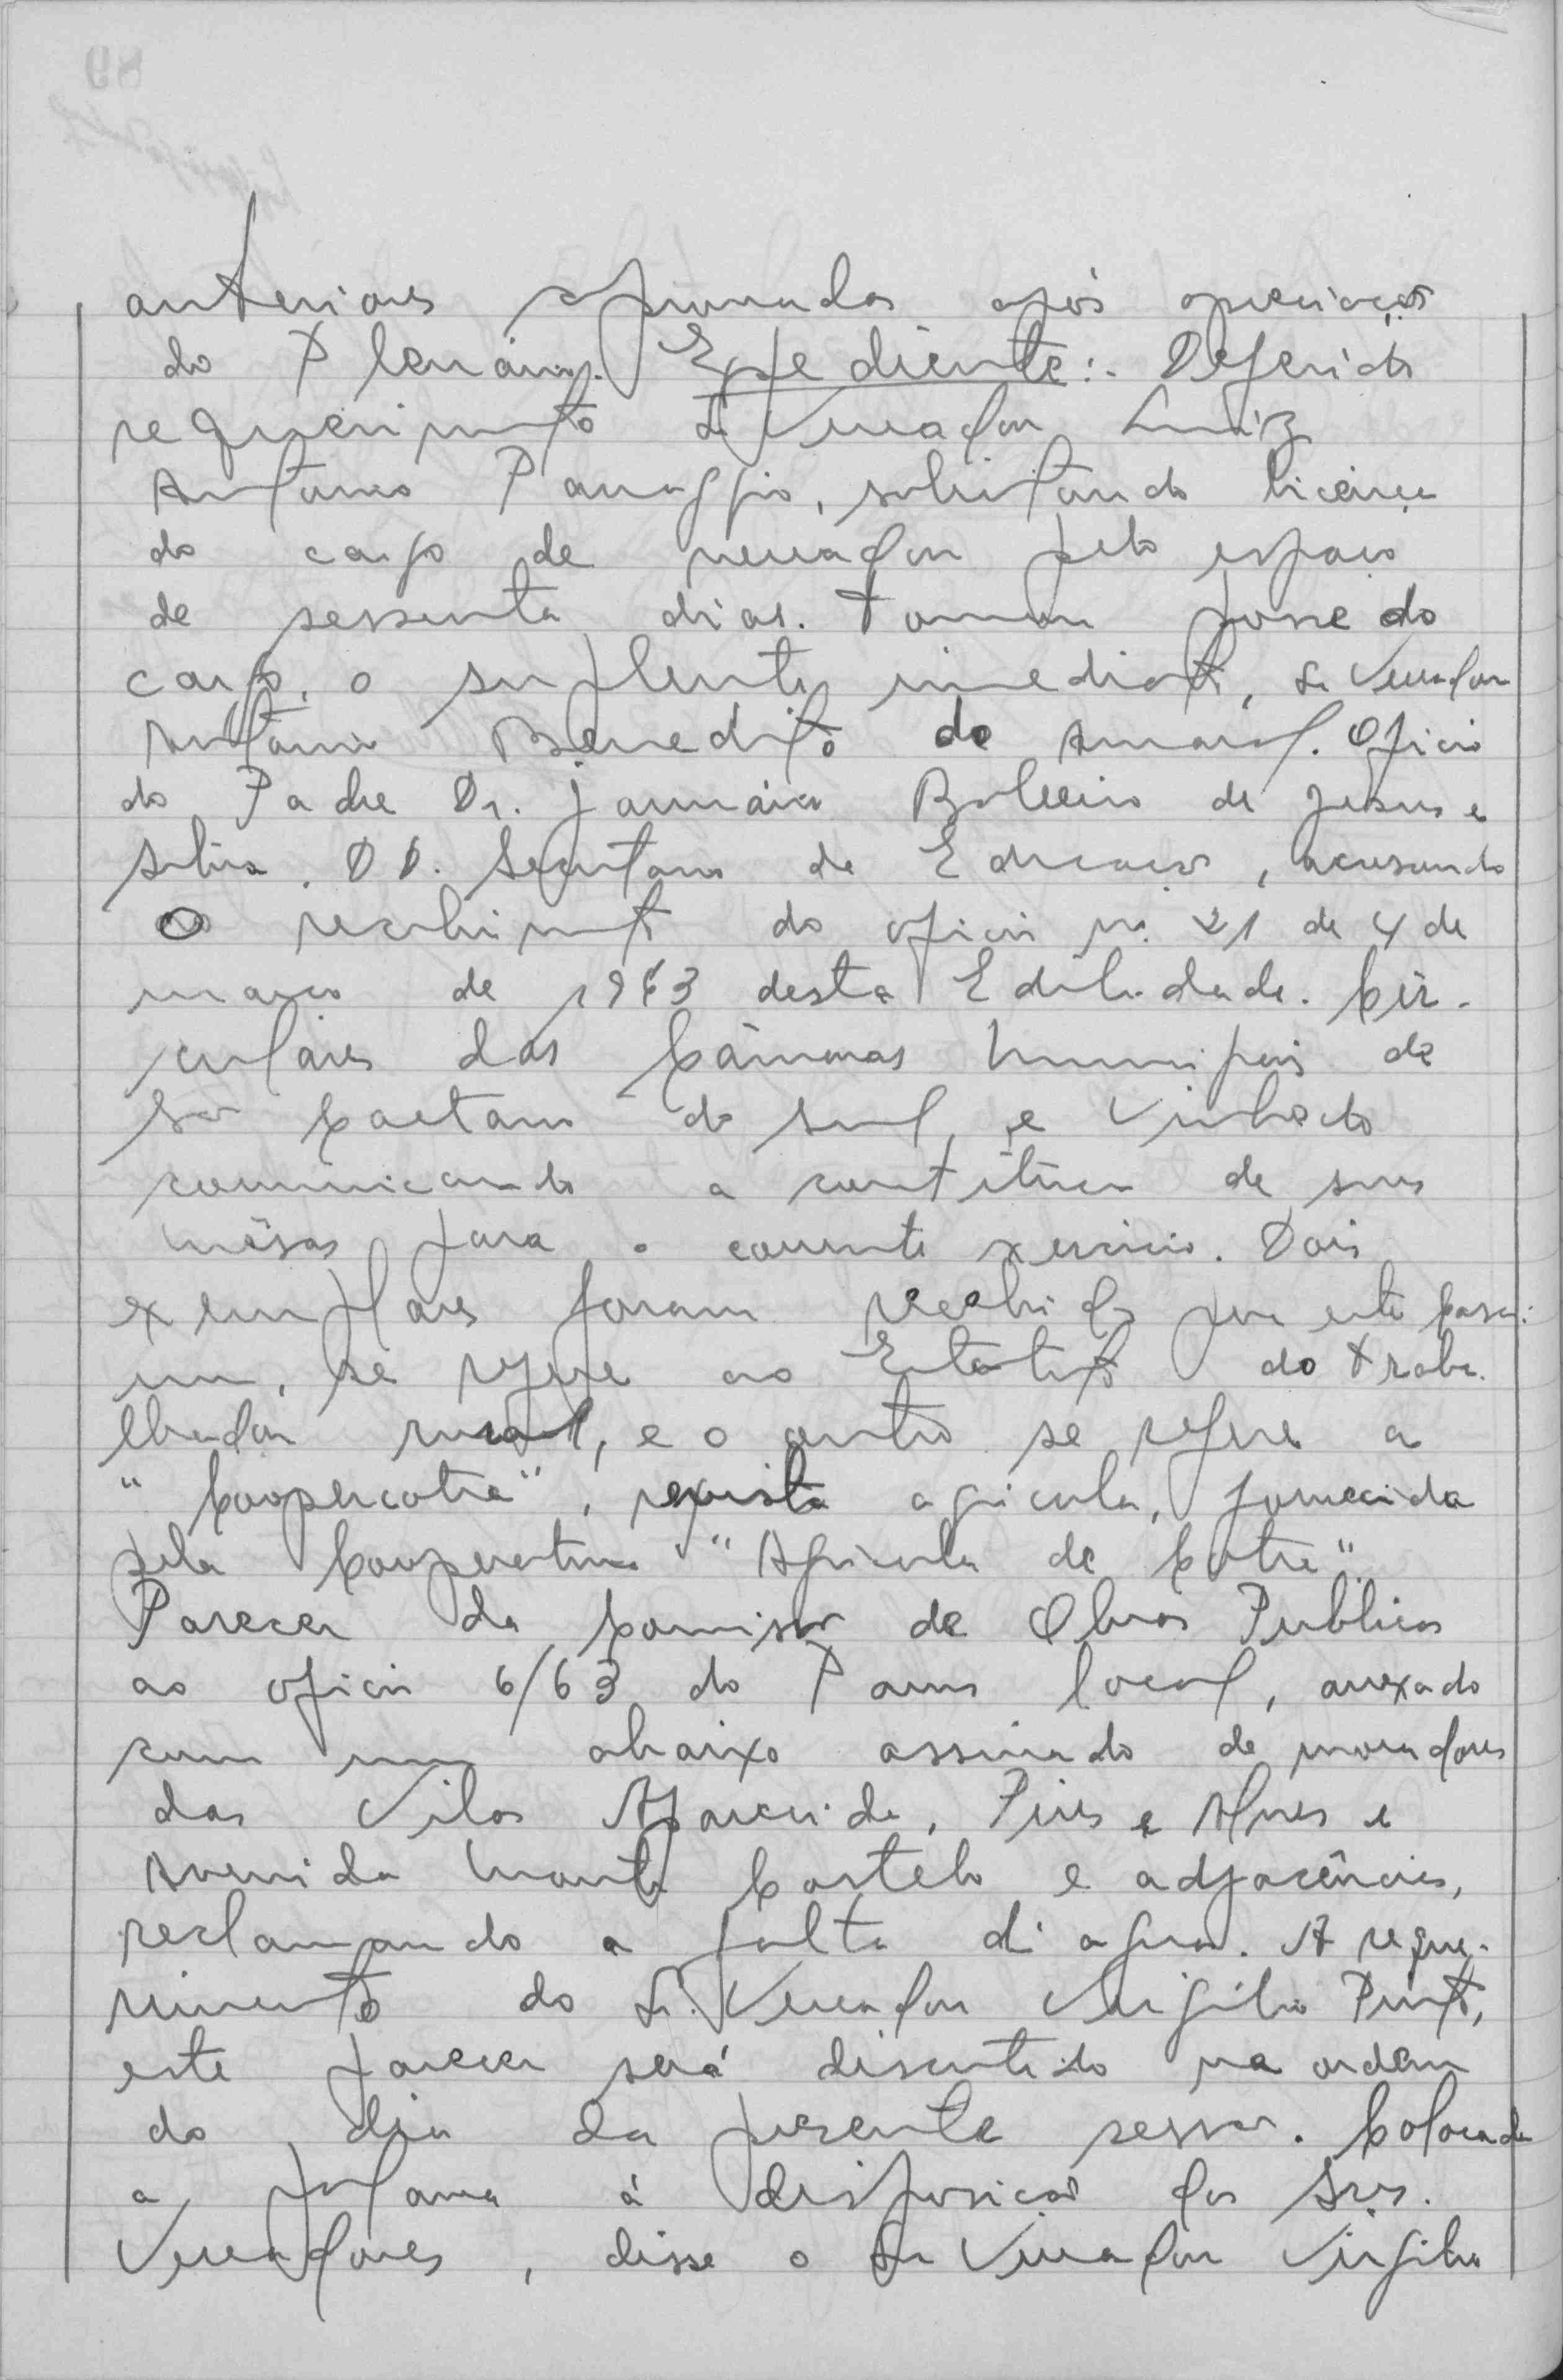 anteriores aprovadas após apreciação
do Plenário. Expediente:. Deferido
requerimento do Vereador Luiz
Antonio Panaggio, solicitando licença
do cargo de vereador pelo espaço
de sessenta dias. Tomou posse do
cargo, o suplente imediato, Sr Vereador
Antonio Benedito do Amaral. Oficio
do Padre Dr. Januário Baleeiro de Jesus e
Silva. DD. Secretario da Educação, acusando
o recebimento do oficio no. 21 de 4 de
março de 1963 desta Edilidade. Cir-
culares das Câmaras Municipais de
São Caetano do Sul, e Vinhedo
comunicando a constituição de suas
mêsas para o corrente exercicio. Dois
exemplares foram recebidos por esta Casa:
um, se refere ao Estatuto do traba-
lhador rural, e o outro se refere a
"Coopercotia", revista agricola, fornecida
pela Cooperativa "Agricola de Cotia".
Parecer da Comissão de Obras Publicas
ao oficio 6/63 do Paço local, anexado
com um abaixo assinado de moradores
das Vilas Aparecida, Pires e Alves e
Avenida Monte Castelo e adjacências,
reclamando a falta di agua. A reque-
rimento do Sr. Vereador Virgilio Pinto,
este parecer será discutido na ordem
do dia da presente sessão. Colocada
a palavra á disposição dos Srs.
Vereadores, disse o Sr Vereador Virgilio